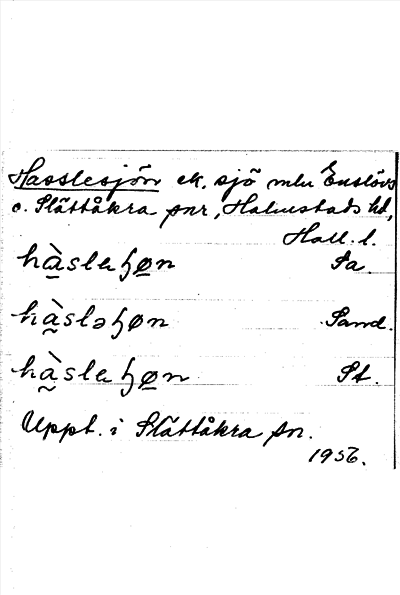 Hasslesjön ek. sjö mln Enslövs
o. Slättåkra snr, Halmstads hd,
Hall. l.
hàslaɧøn Sa.
hàsləɧøn Sand.
hàslaɧøn St.
Uppt. i Slättåkra sn.
1956.